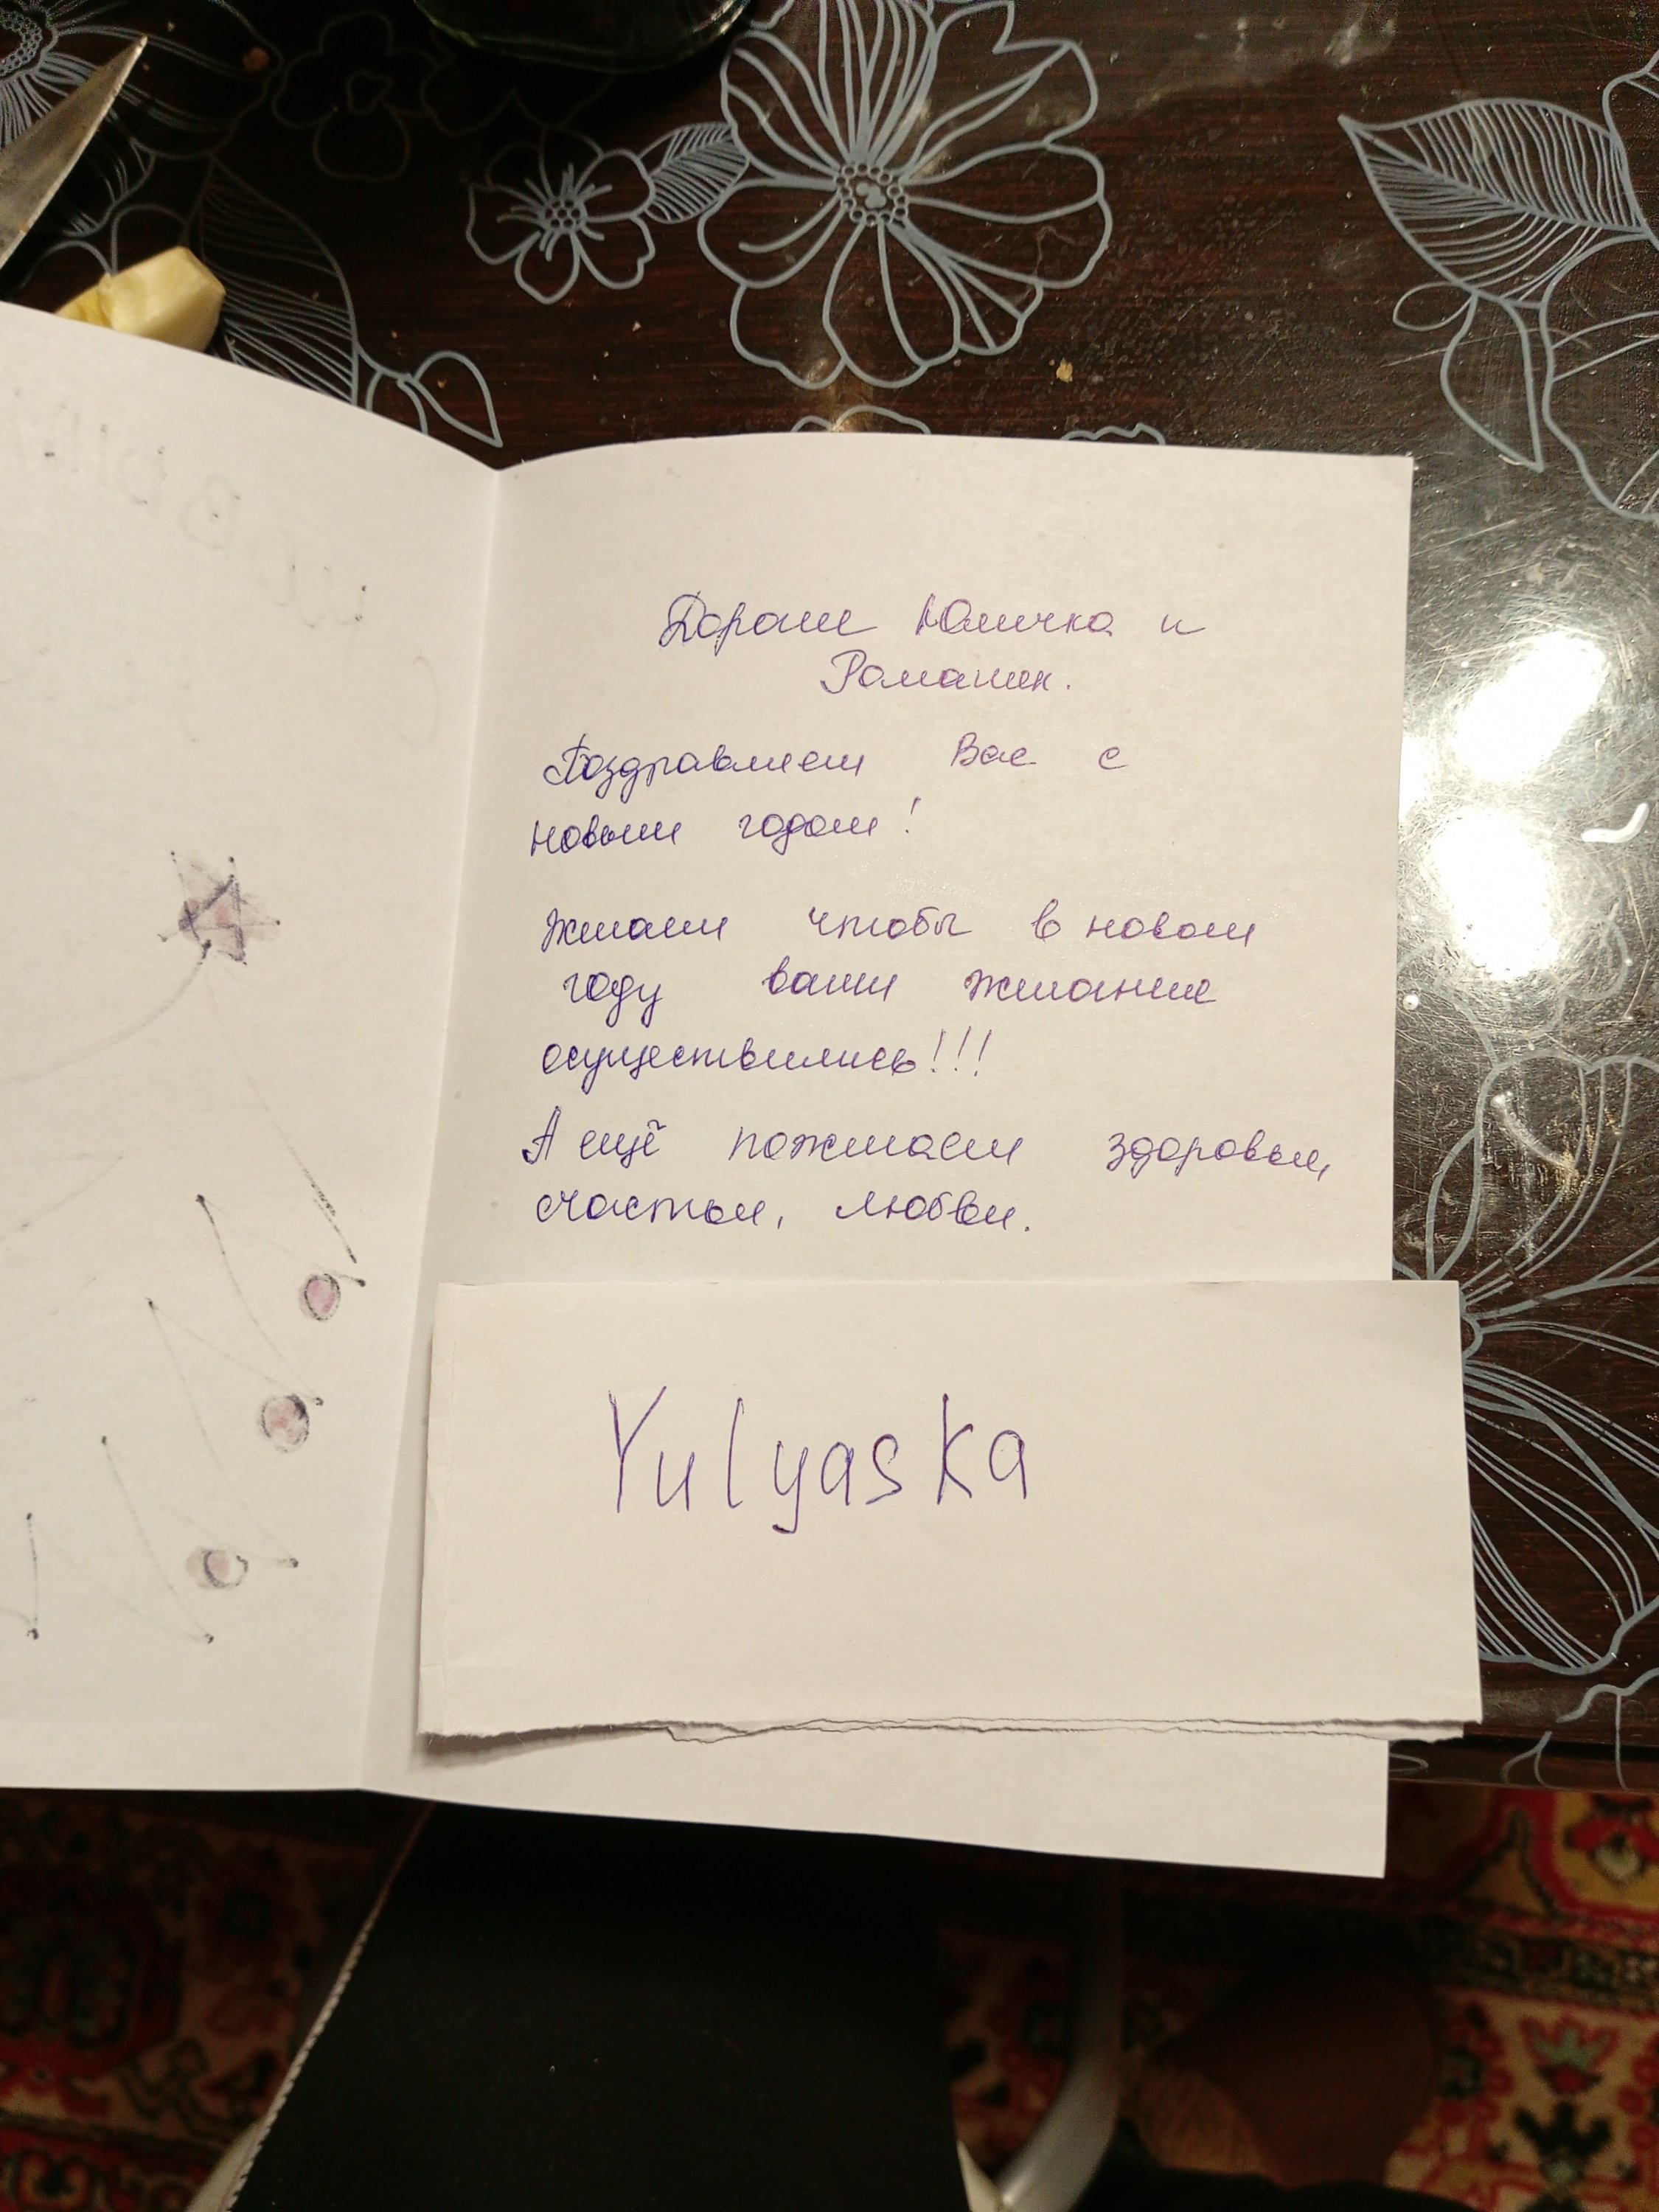 Дорогие Юличка и
Романик.
Поздравляем Вас с
новым годом!
Желаем чтобы в новом
году ваши желание
осуществились!!!
А ещё пожелаем здоровья,
счастья, любви.
Yulyaska